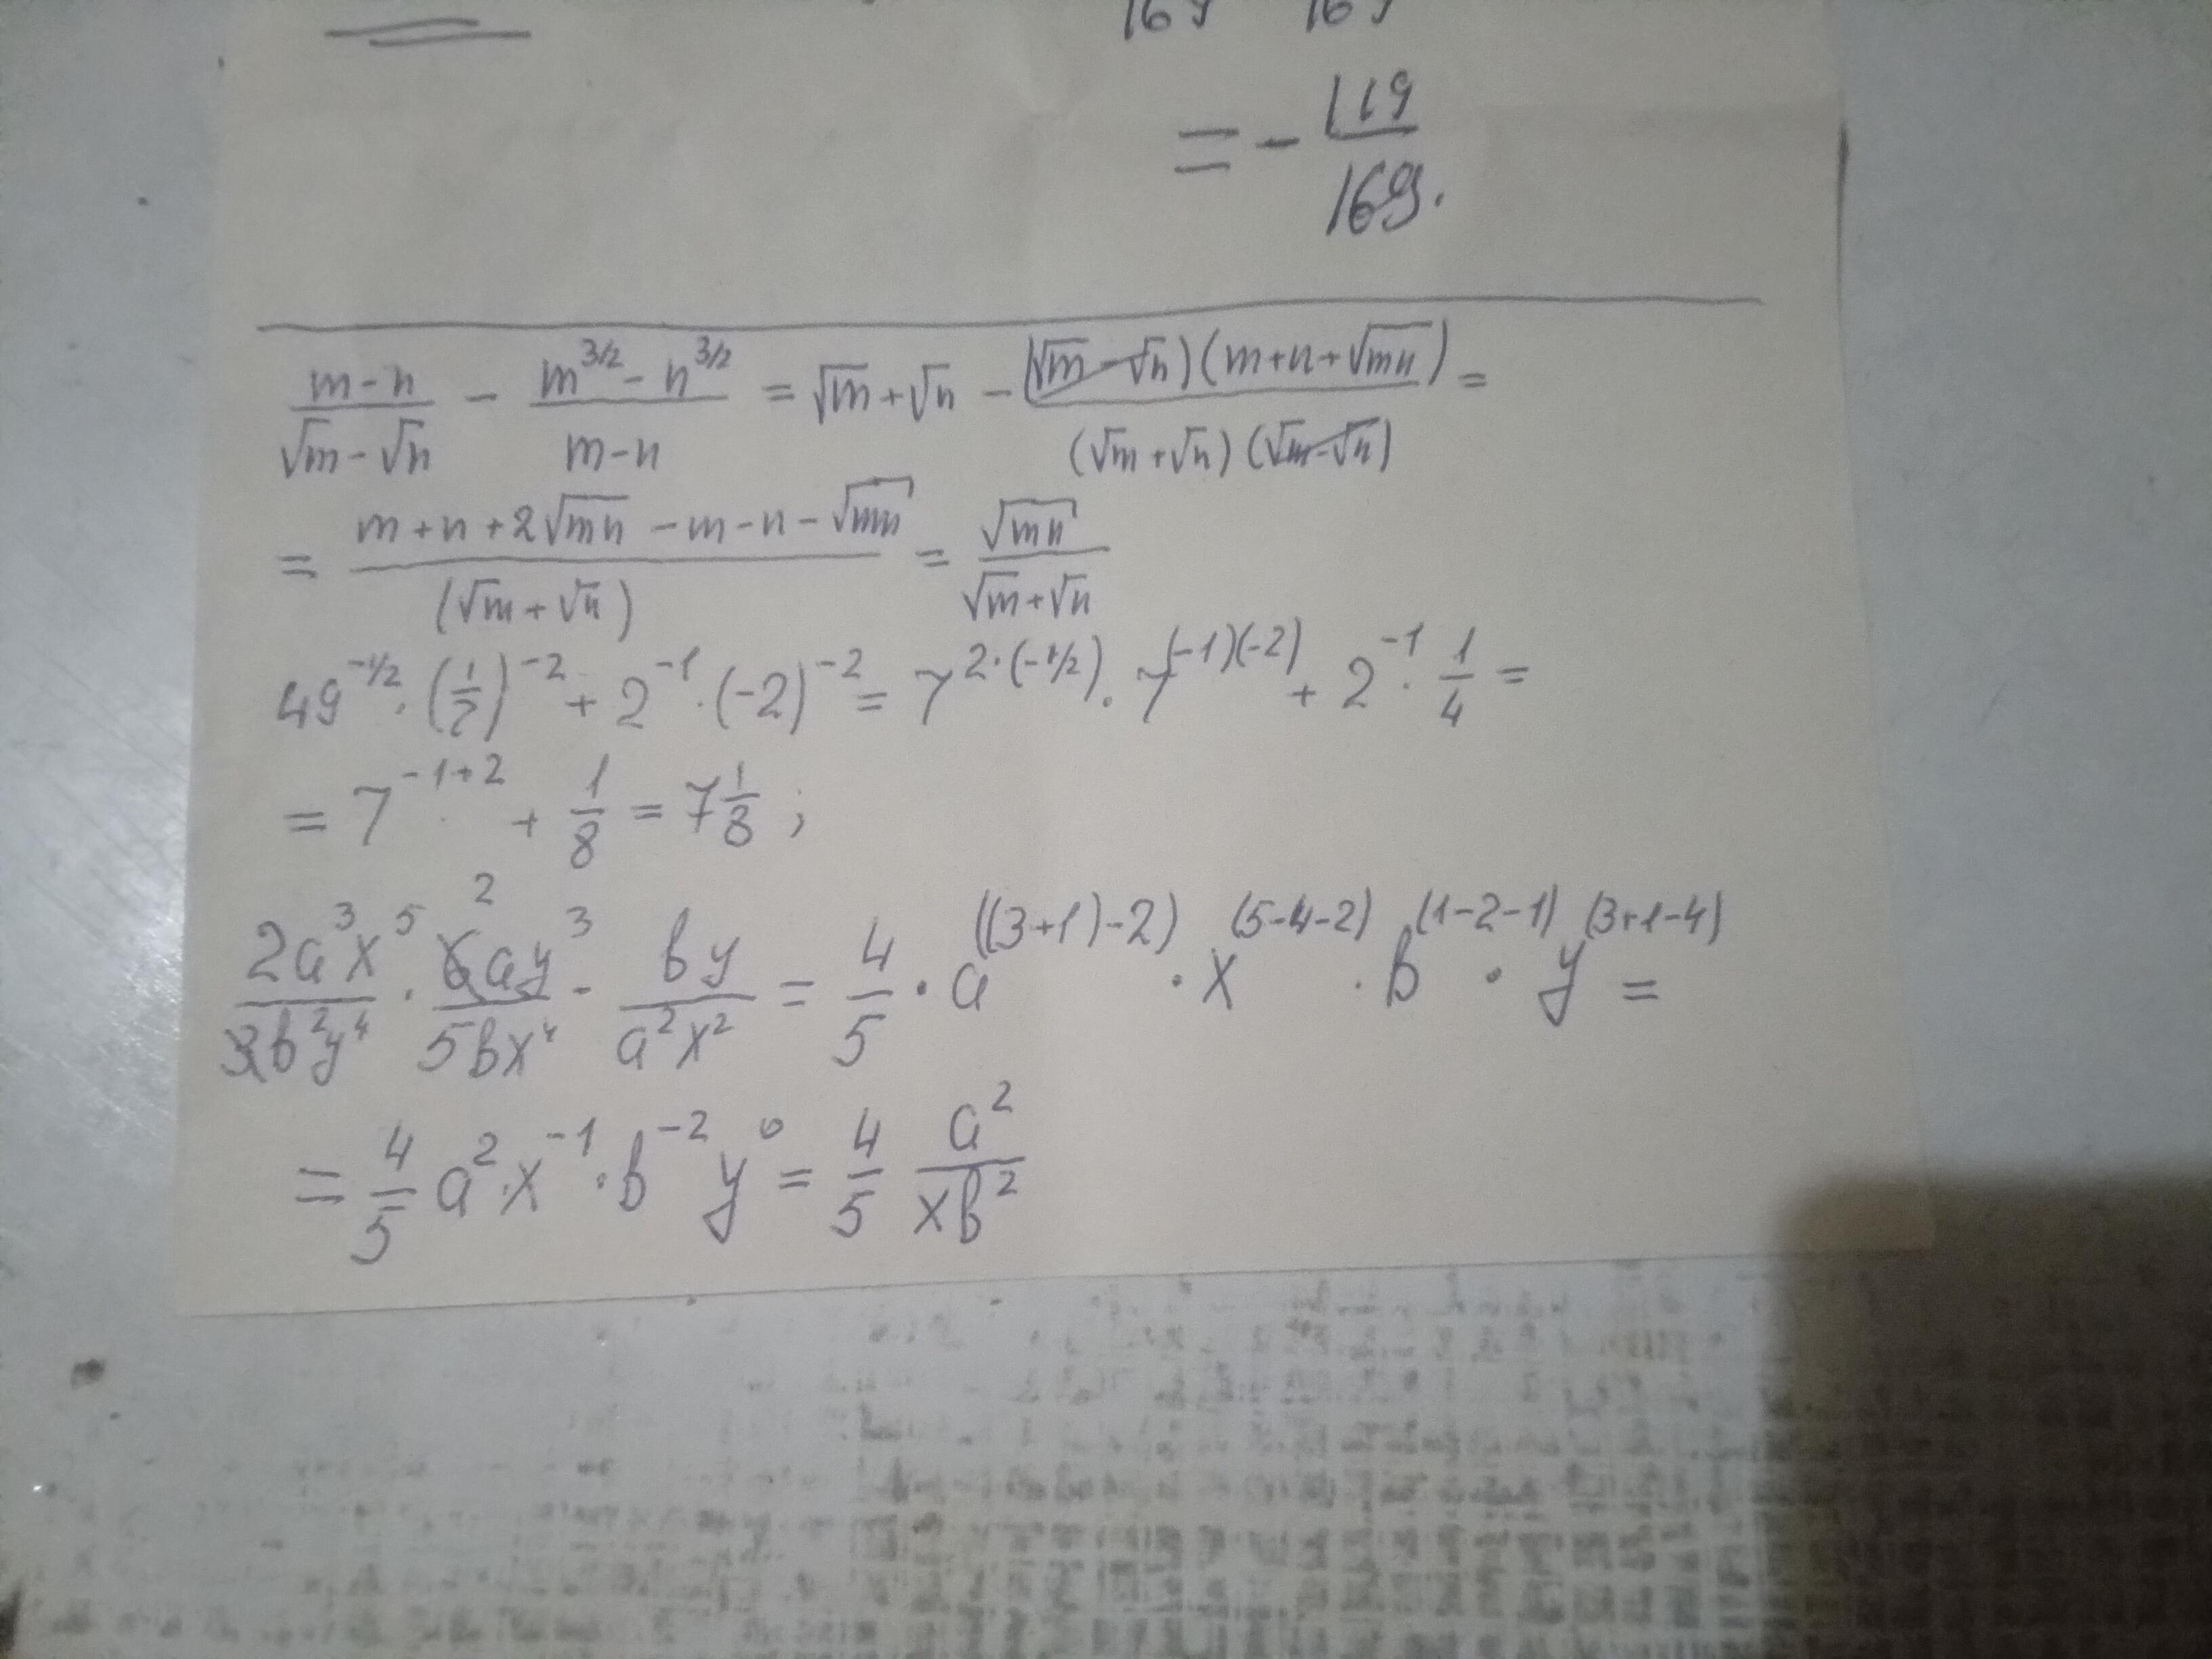 169 169
= - 119/169.
(m-n)/(√m-√n) - (m^(3/2) - n^(3/2))/(m-n) = √m+√n - ((√m-√n)(m+n+√mn))/((√m+√n)(√m-√n)) =
= (m+n+2√mn - m-n-√mn)/((√m+√n)) = √mn/(√m+√n)
49^(-1/2) · (1/7)^(-2) + 2^(-1) · (-2)^(-2) = 7^(2·(-1/2)) · 7^((-1)(-2)) + 2^(-1) · 1/4 =
= 7^(-1+2) + 1/8 = 7 1/8 ;
2a³x⁵/3b²y⁴ · 6 2 ay³/5bx⁴ · by/a²x² = 4/5 · a^((3+1)-2) · x^(5-4-2) · b^(1-2-1) · y^(3+1-4) =
= 4/5 a² · x^(-1) · b^(-2) y⁰ = 4/5 a²/xb²